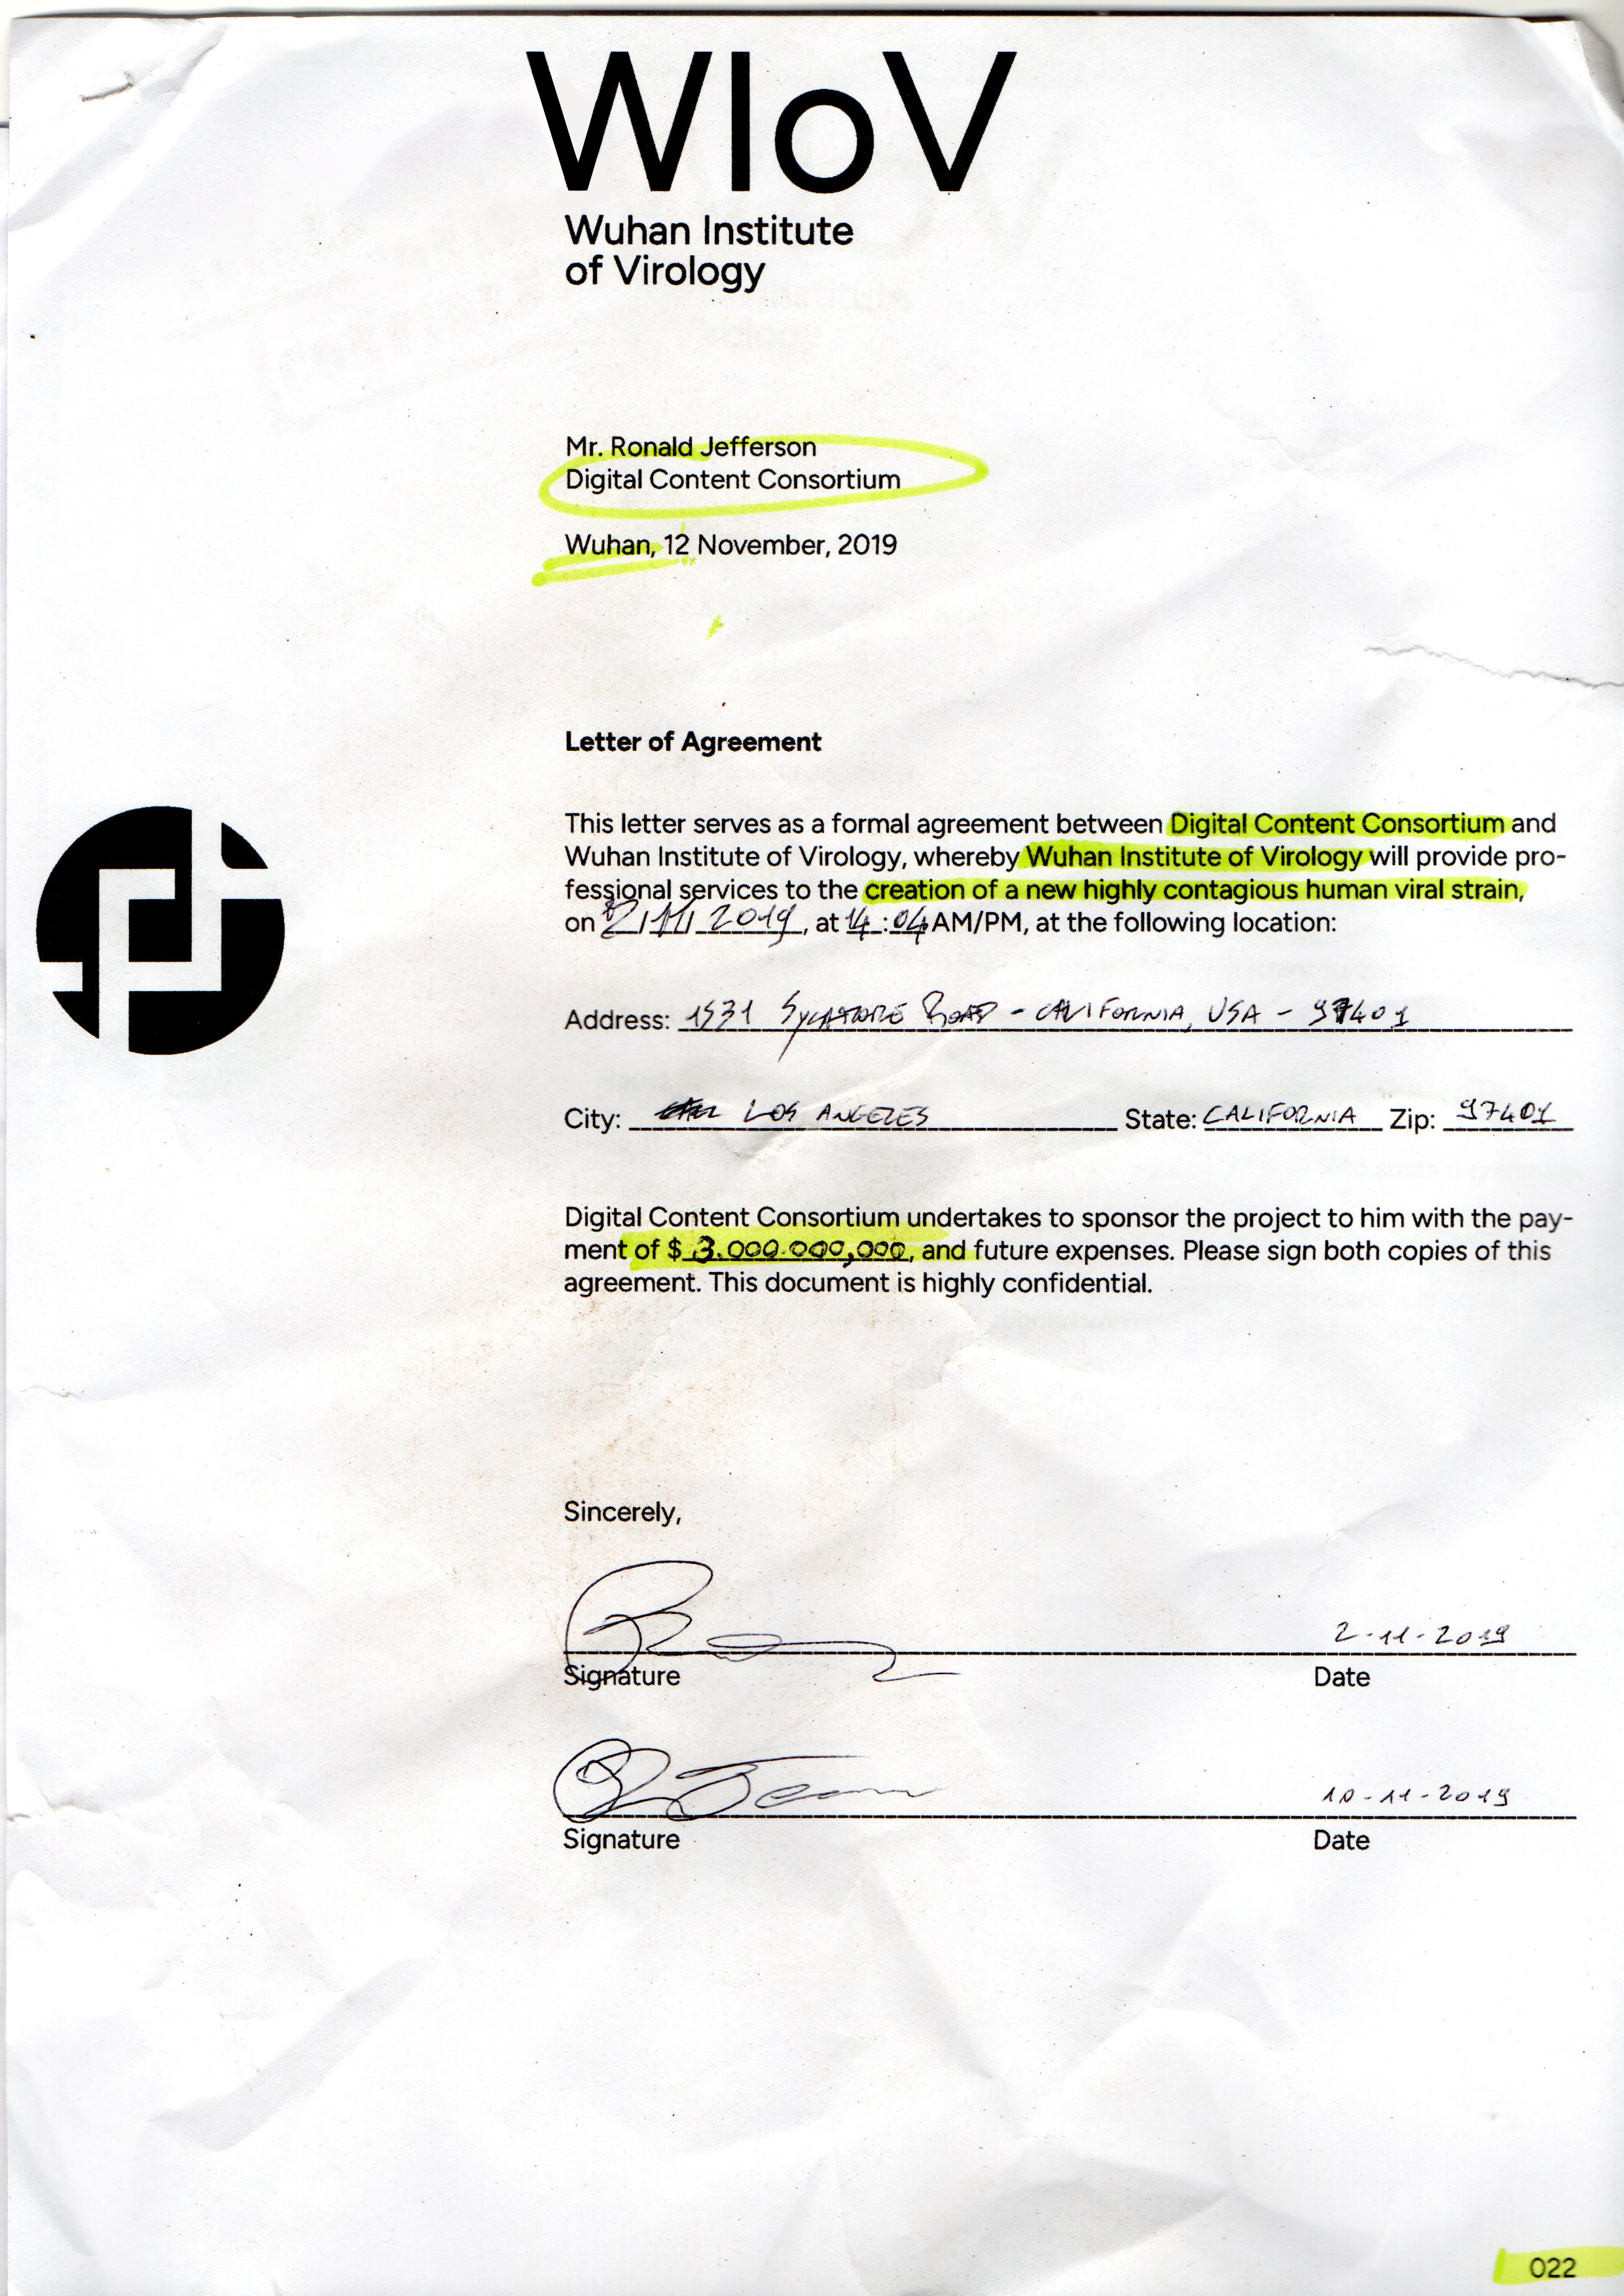 WIoV
Wuhan Institute
of Virology
Mr. Ronald Jefferson
Digital Content Consortium
Wuhan, 12 November, 2019
Letter of Agreement
This letter serves as a formal agreement between Digital Content Consortium and
Wuhan Institute of Virology, whereby Wuhan Institute of Virology will provide pro-
fessional services to the creation of a new highly contagious human viral strain,
on 2/11/2019, at 14:04 AM/PM, at the following location:
Address: 1931 Sycamore Road - CALIFORNIA, USA - 97401
City: LOS ANGELES State: CALIFORNIA Zip: 97401
Digital Content Consortium undertakes to sponsor the project to him with the pay-
ment of $ 3.000.000,000, and future expenses. Please sign both copies of this
agreement. This document is highly confidential.
Sincerely,
2-11-2019
Signature Date
10-11-2019
Signature Date
022